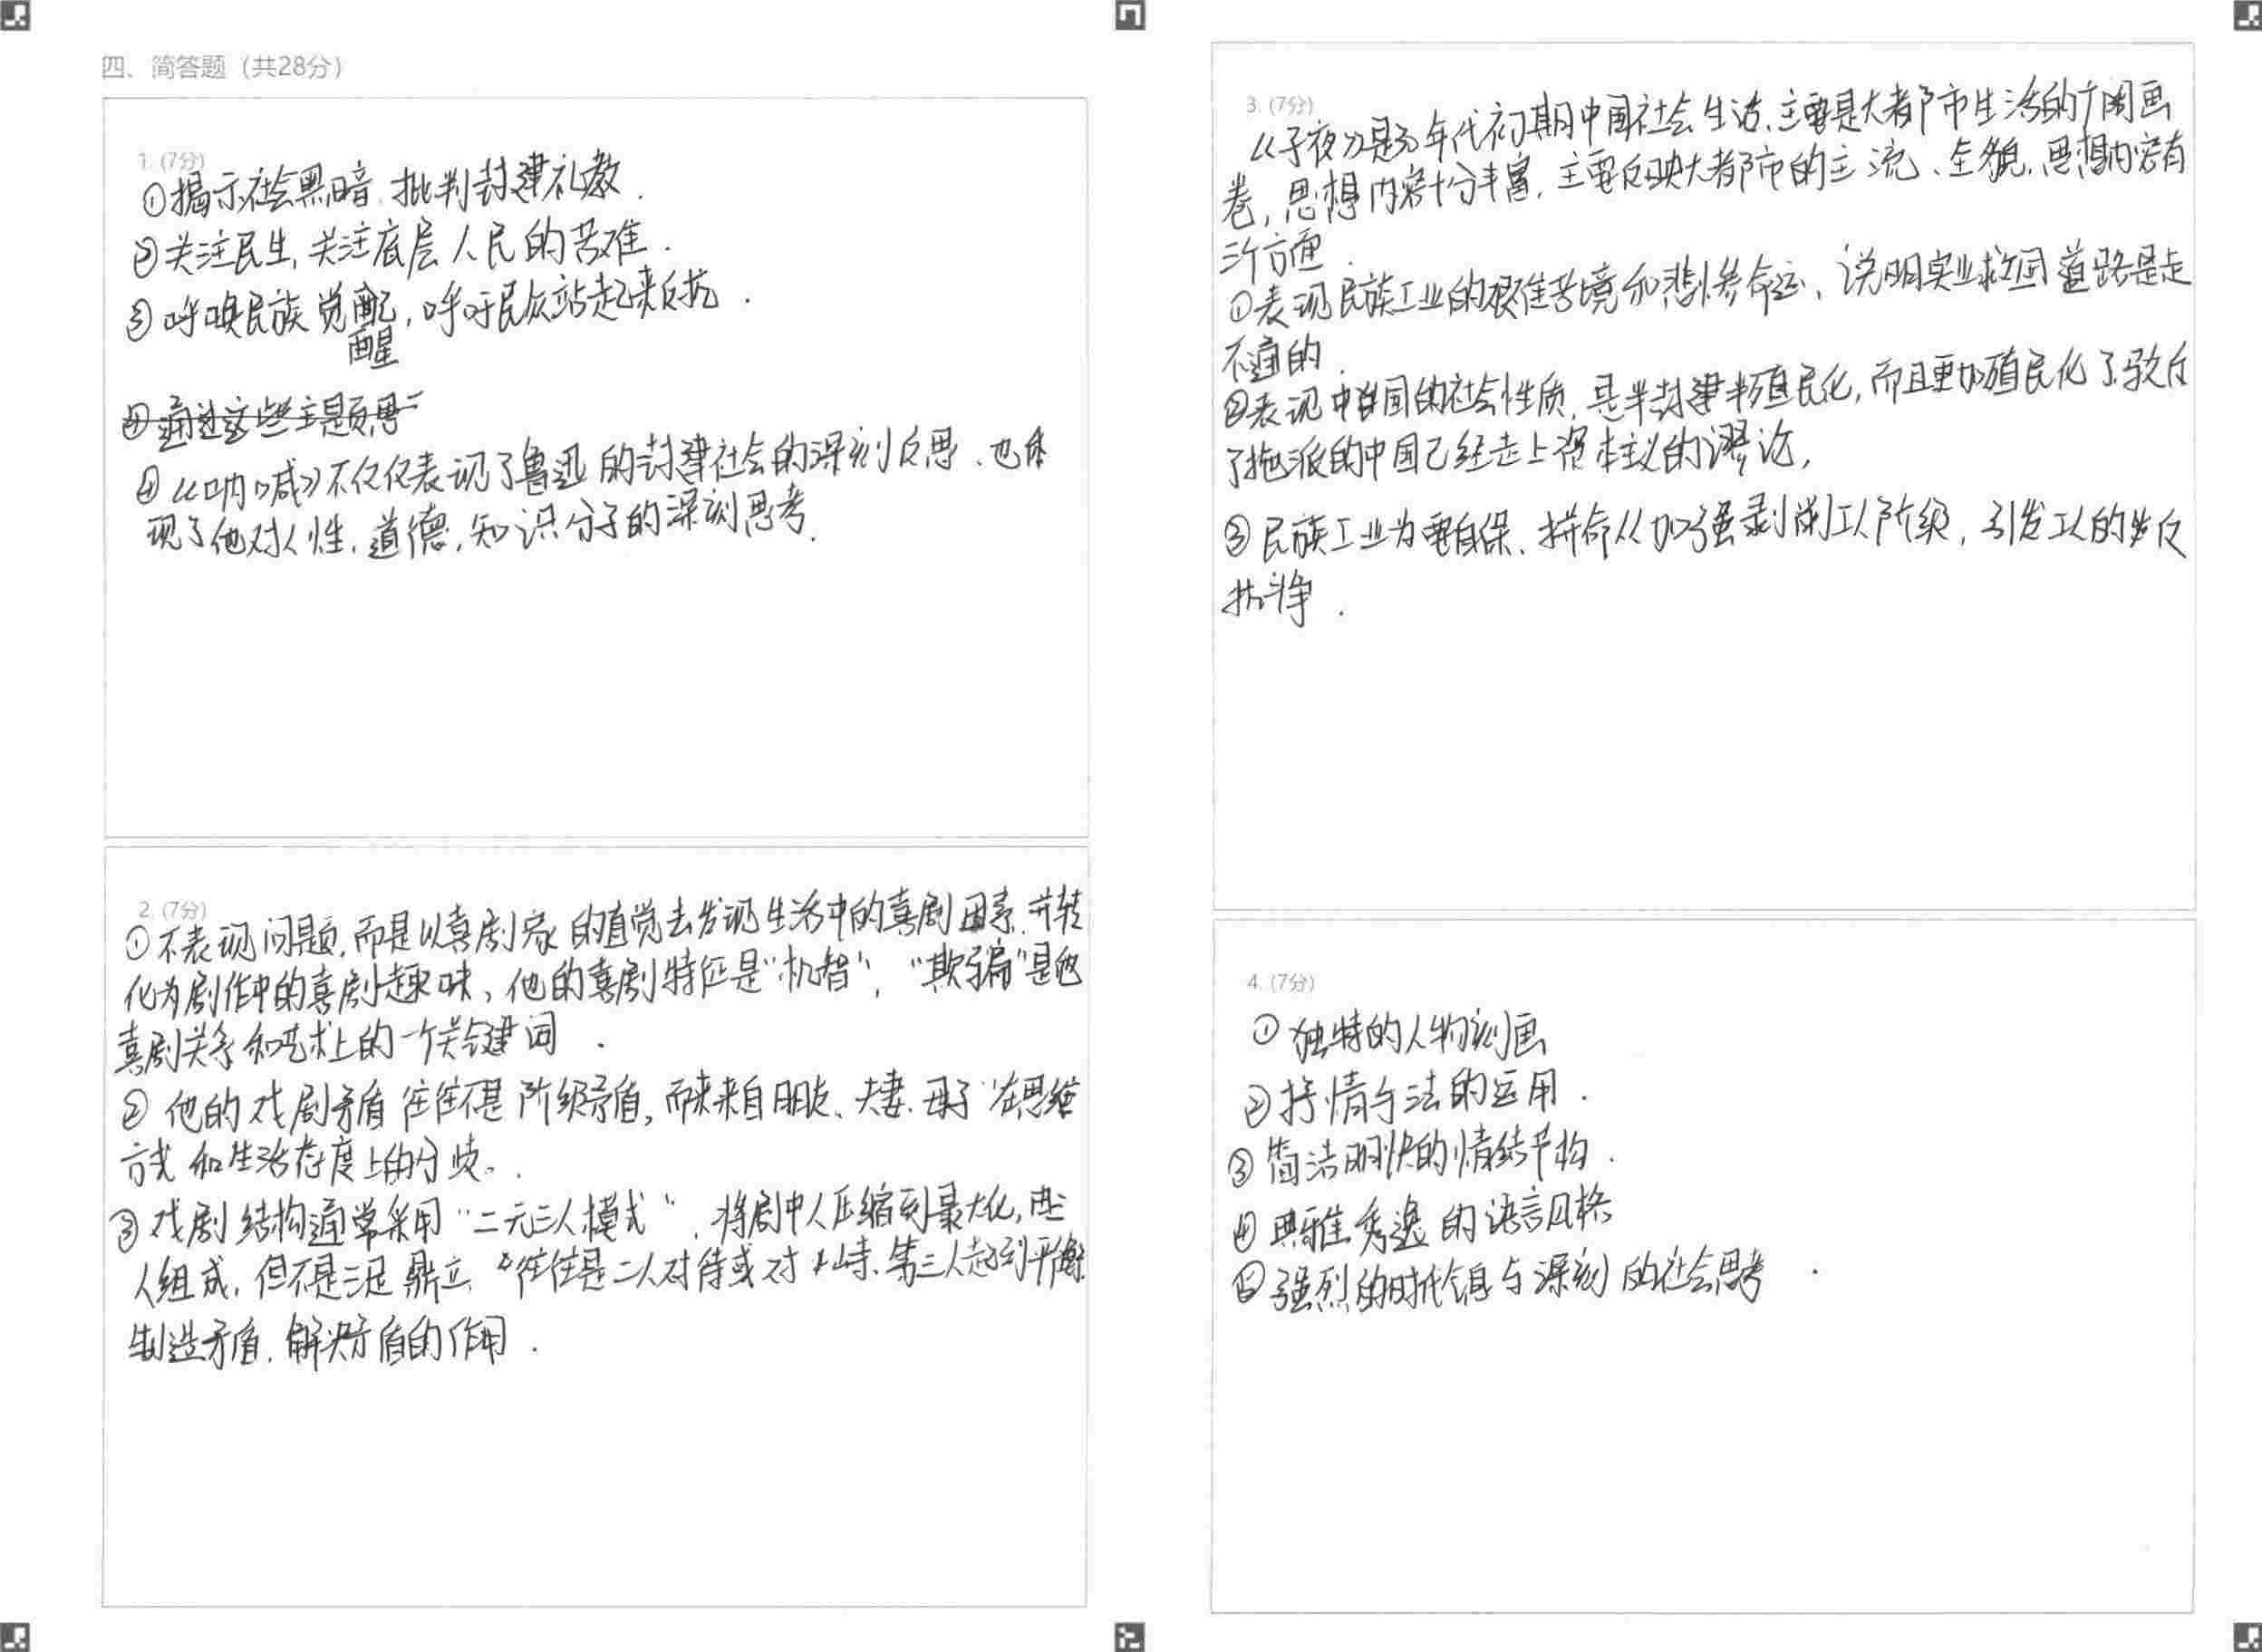 四、简答题（共28分）
1. (7分)
①揭示社会黑暗，批判封建礼教．
②关注民生，关注底层人民的苦难．
③呼唤民族觉醒，呼吁民众站起来反抗．
④通过这些主题，
④《呐喊》不仅仅表现了鲁迅的封建社会的深刻反思、也体
现了他对人性，道德，知识分子的深刻思考．
2. (7分)
①不表现问题，而是以喜剧家的直觉去发现生活中的喜剧因素，并转
化为剧作中的喜剧趣味，他的喜剧特征是“机智”，“欺骗”是他
喜剧关系和艺术上的一个关键词．
②他的戏剧矛盾往往不是阶级矛盾，而来来自朋友、夫妻、母子在思维
方式和生活态度上的分歧．
③戏剧结构通常采用“二元三人模式”，将剧中人压缩到最大化，由三
人组成，但不是三足鼎立，往往是二人对待或对峙、第三人起到平衡
制造矛盾，解决矛盾的作用．
3. (7分)
《子夜》是30年代初期中国社会生活、主要是大都市生活的广阔画
卷，思想内容十分丰富，主要反映大都市的主流、全貌，思想内容有
三个方面．
①表现民族工业的艰难苦境和悲惨命运、说明实业救国道路是走
不通的．
②表现中国的社会性质，是半封建半殖民化，而且更加殖民化了，驳斥
了托派的中国已经走上资本主义的谬论，
③民族工业为要自保、拼命从加强剥削工人阶级，引发工人的反
抗斗争．
4. (7分)
①独特的人物刻画
②抒情手法的运用．
③简洁明快的情结节构．
④典雅秀逸的语言风格
⑤强烈的时代气息与深刻的社会思考．